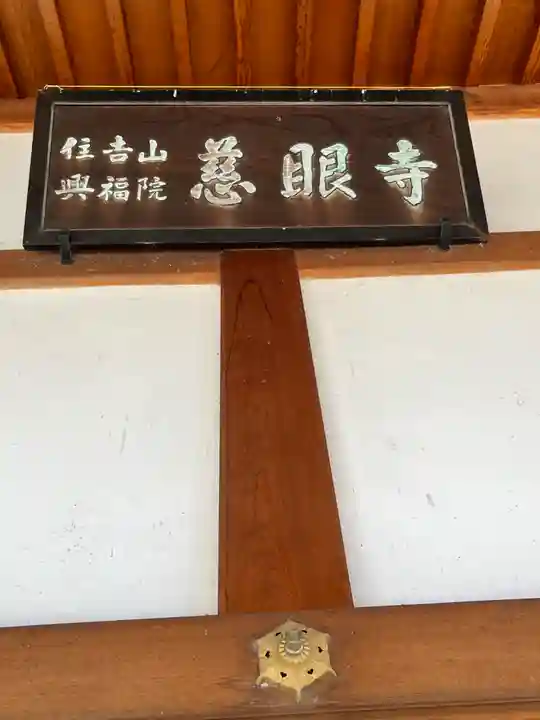 住吉山
興福院
慈眼寺